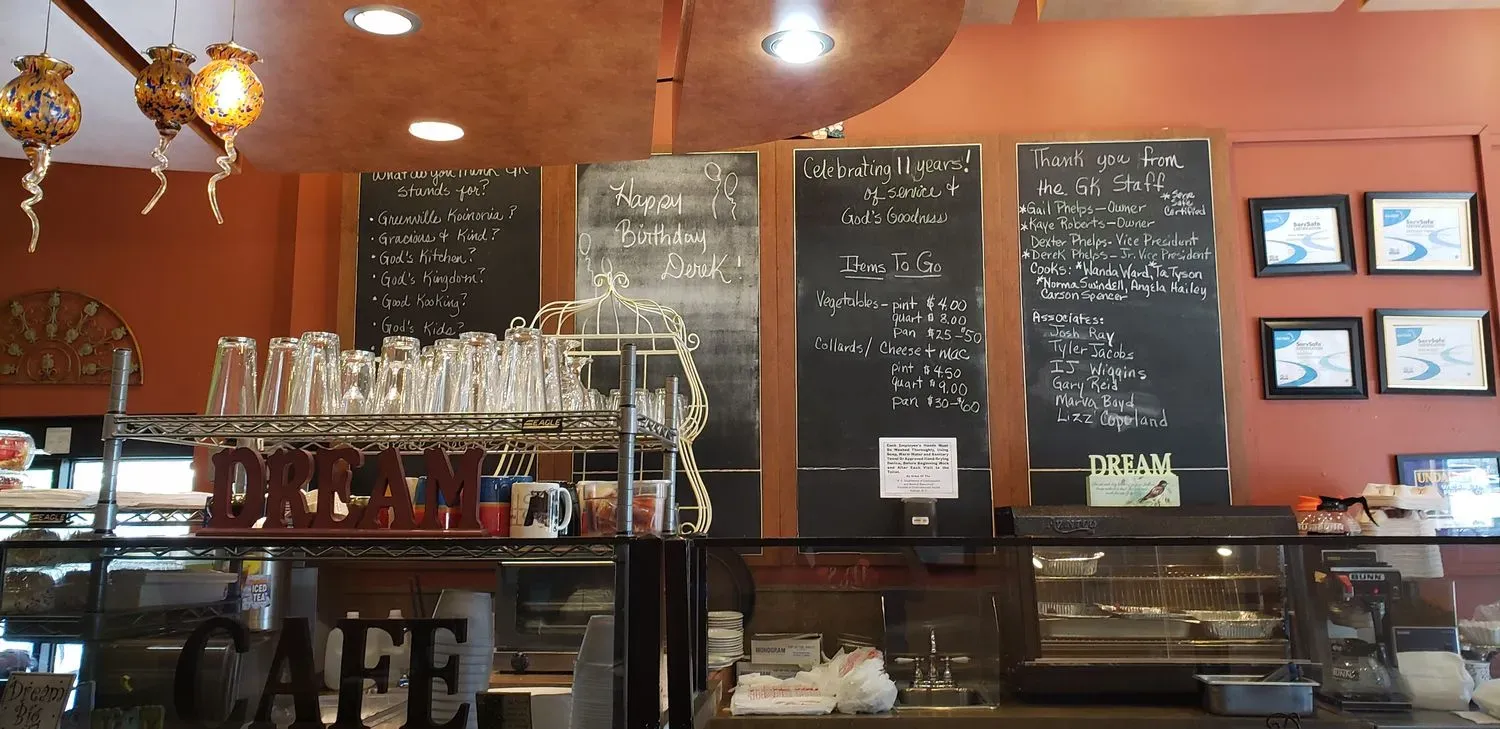 What do you think GK
stands for?
• Greenville Koinonia?
• Gracious & Kind?
• God's Kitchen?
• God's Kingdom?
• Good Kooking?
• God's Kids?
Happy
Birthday
Derek!
Celebrating 11 years!
of service &
God's Goodness
Items To Go
Vegetables - pint $4.00
quart $8.00
pan $25-$50
Collards/ Cheese + mac
pint $4.50
quart $9.00
pan $30-$60
Each Employee's Hands Must
Be Washed Thoroughly, Using
Soap, Warm Water and Sanitary
Towel Or Approved Hand-Drying
Device, Before Beginning Work
and After Each Visit to the
Toilet.
Thank you from
the GK Staff
*Serv
Safe
Certified
*Gail Phelps - Owner
*Kaye Roberts - Owner
Dexter Phelps - Vice President
*Derek Phelps - Jr. Vice President
Cooks: *Wanda Ward, *Ta Tyson
*Norma Swindell, Angela Hailey
Carson Spencer
Associates:
Josh Ray
Tyler Jacobs
IJ Wiggins
Gary Reid
Marva Boyd
Lizz Copeland
ServSafe
CERTIFICATION
ServSafe
CERTIFICATION
ServSafe
CERTIFICATION
ServSafe
CERTIFICATION
DREAM
EAGLE
DREAM
EAGLE
ICED
TEA
CAFE
Dream
Big
MONOGRAM
BUNN
BUNN